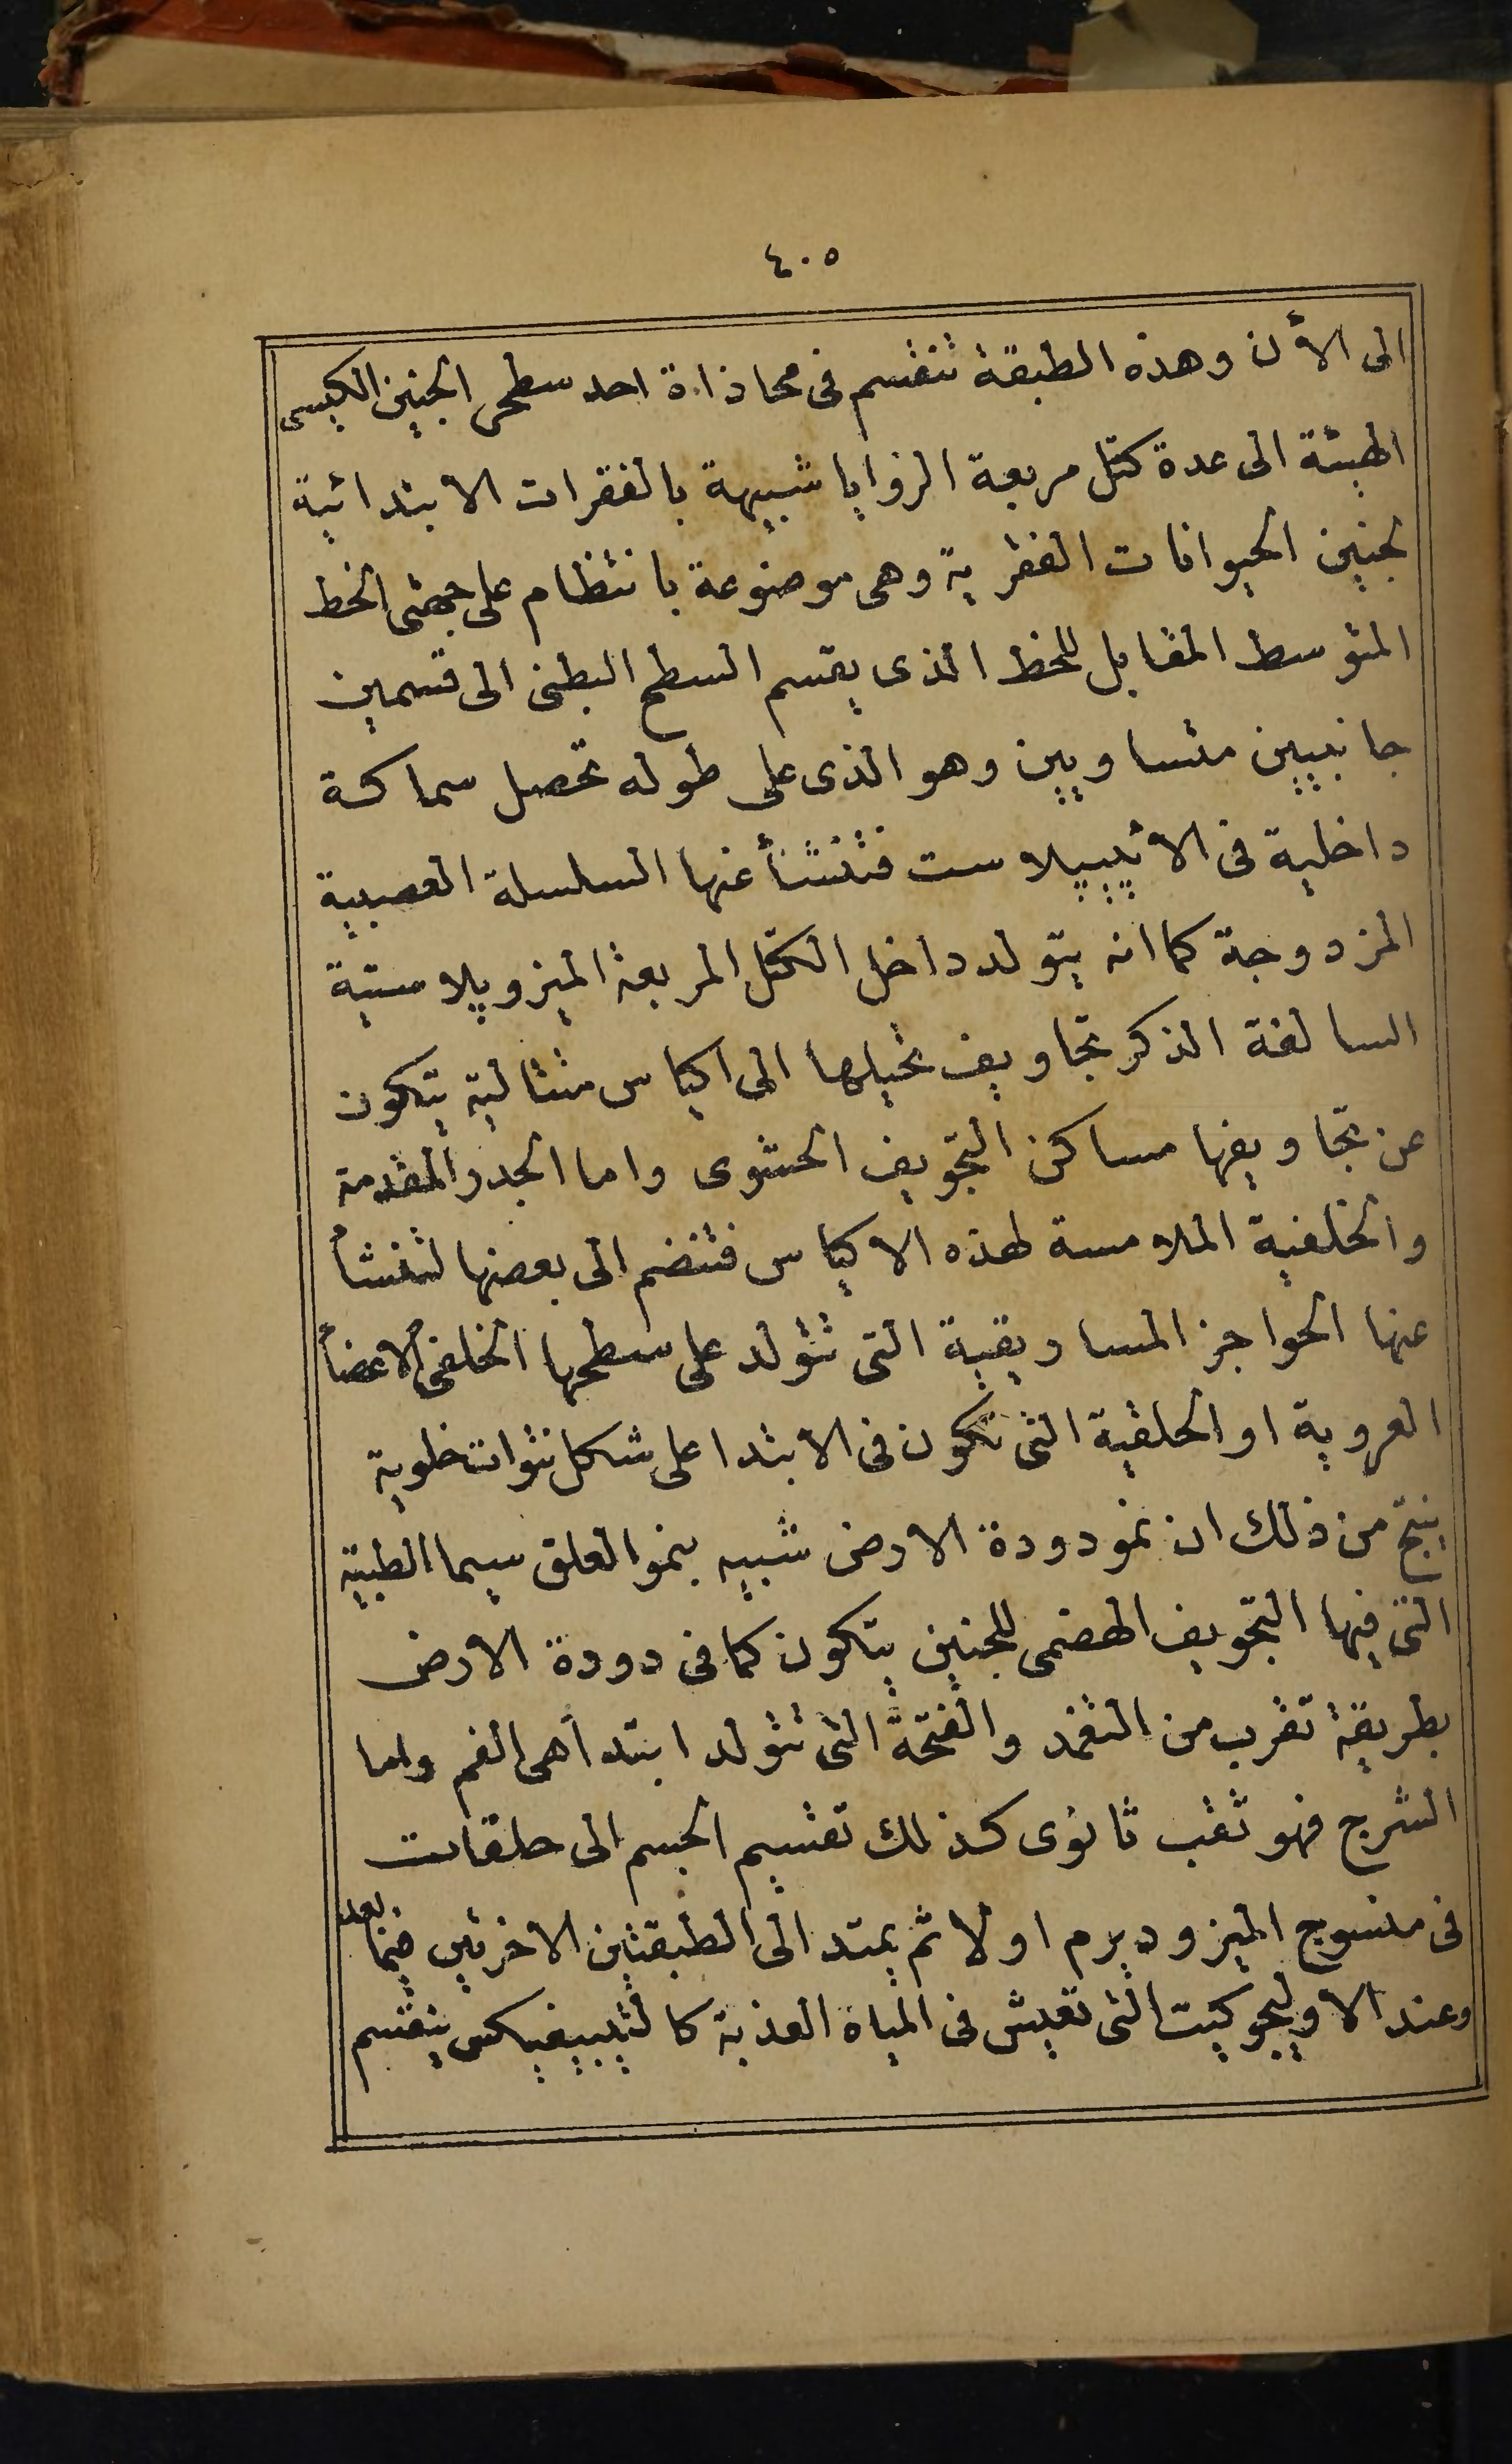 ٤٠٥
الى الأن وهذه الطبقة تنقسم فى محاذاة احد سطحى الجنين الكيسى
الهيئة الى عدة كتل مربعة الزوايا شبيهة بالفقرات الابتدائية
لجنين الحيوانات الفقرية وهى موضوعة بانتظام على جهتى الخط
المتوسط المقابل للخط الذى يقسم السطح البطنى الى قسمين
جانبيين متساويين وهو الذى على طوله تحصل سماكة
داخلية فى الائيبيلاست فتنشأ عنها السلسلة العصبية
المزدوجة كما انه يتولد داخل الكتل المربعة الميزوبلاستية
السالفة الذكر تجاويف تحيلها الى اكياس متتالية يتكون
عن تجاويفها مساكن التجويف الحشوى واما الجدر المقدمة
والخلفية الملامسة لهذه الاكياس فتنضم الى بعضها لتنشأ
عنها الحواجز المساريقية التى تتولد على سطحها الخلفى الاعضأ
العروية او الحلقية التى تكون فى الابتدا على شكل نتوات خلوية
ينتج من ذلك ان نمو دودة الارض شبيه بنمو العلق سيما الطبية
التى فيها التجويف الهضمى للجنين يتكون كما فى دودة الارض
بطريقة تقرب من التغمد والفتحة التى تتولد ابتدأهى الفم واما
الشرج فهو ثقب ثانوى كذلك تقسيم الجسم الى حلقات
فى منسوج الميزوديرم اولا ثم يمتد الى الطبقتين الاخرتين فيما بعد
وعند الاوليجوكيت التى تعيش فى المياه العذبة كالتيبيفيكس ينقسم